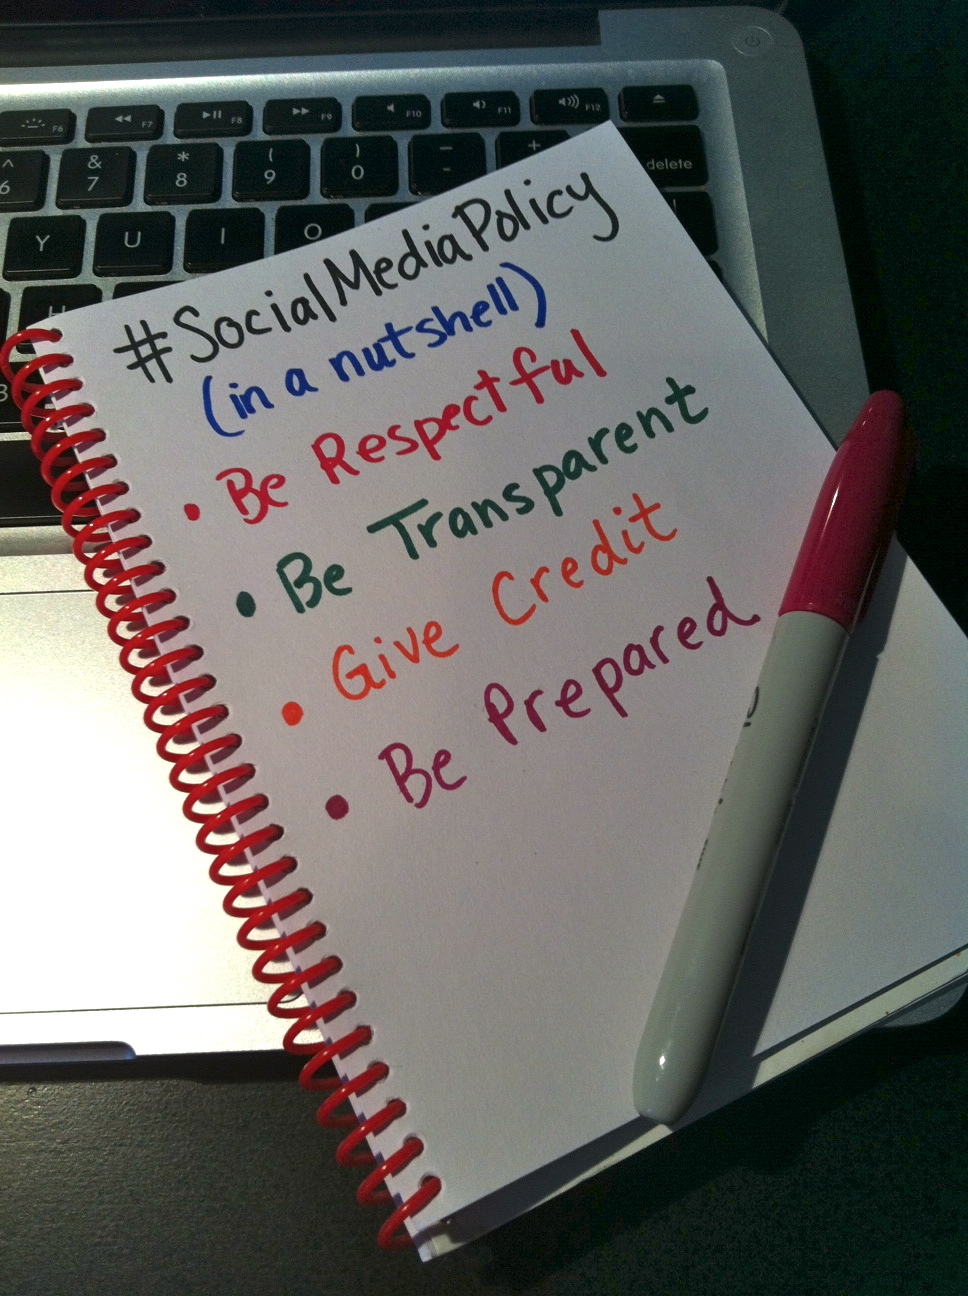 F6 F7 F8 F9 F10 F11 F12
^ & * ( ) - +
6 7 8 9 0 delete
Y U I O
#SocialMediaPolicy
(in a nutshell)
• Be Respectful
• Be Transparent
• Give Credit
• Be Prepared